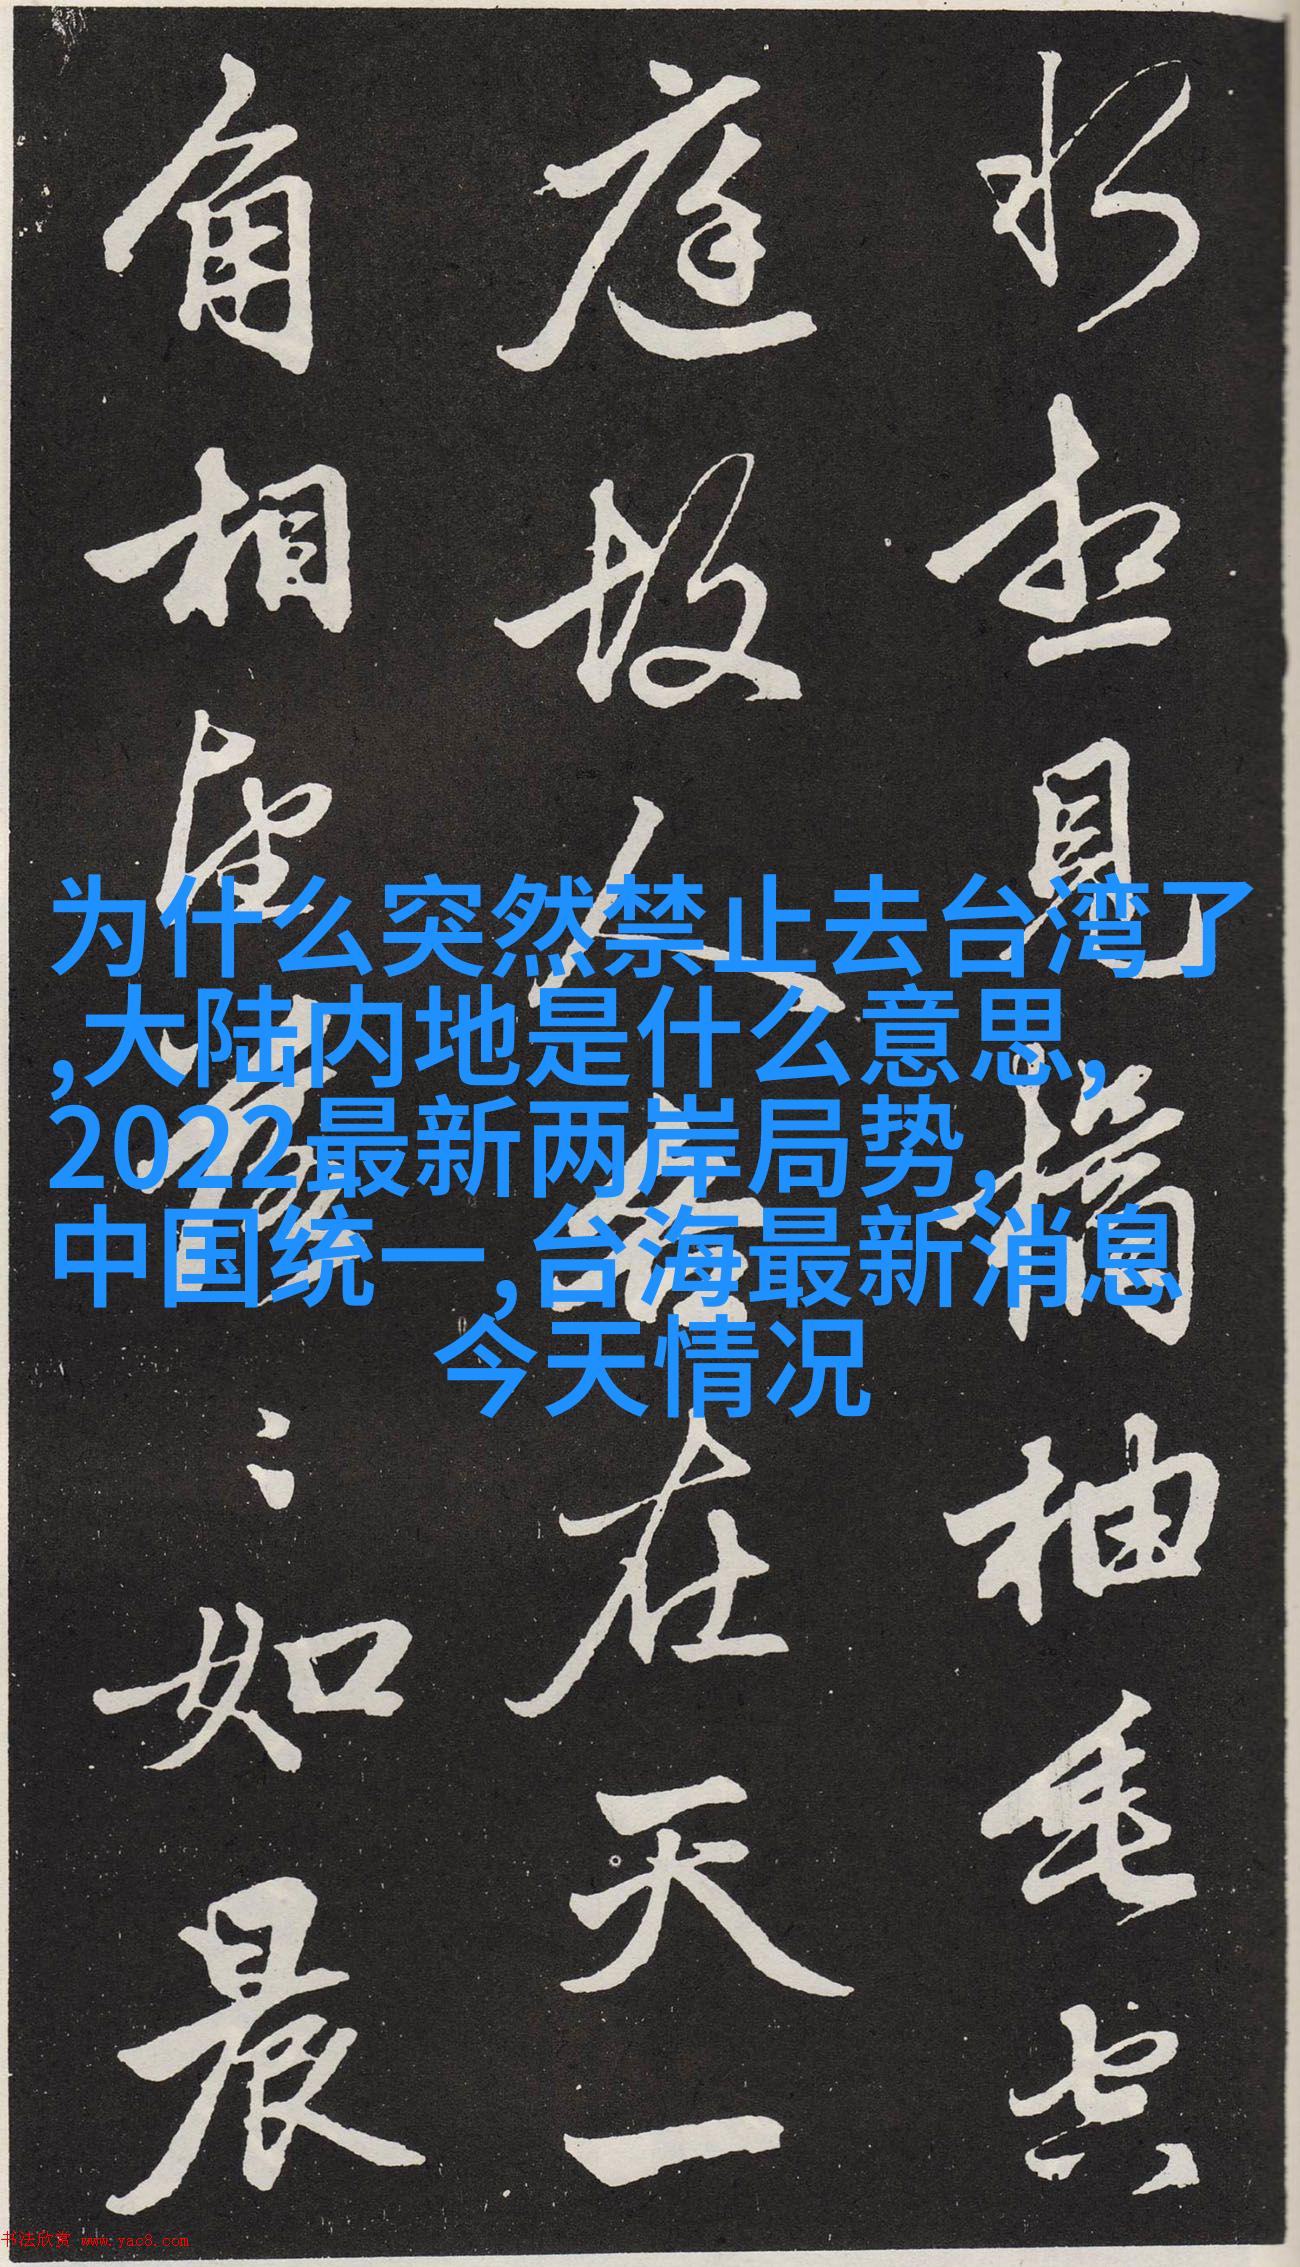 想見橘柚垂空
庭故人各在天一
角相望落〻如晨
为什么突然禁止去台湾了
,大陆内地是什么意思,
2022最新两岸局势,
中国统一,台海最新消息
今天情况
书法欣赏 www.yac8.com